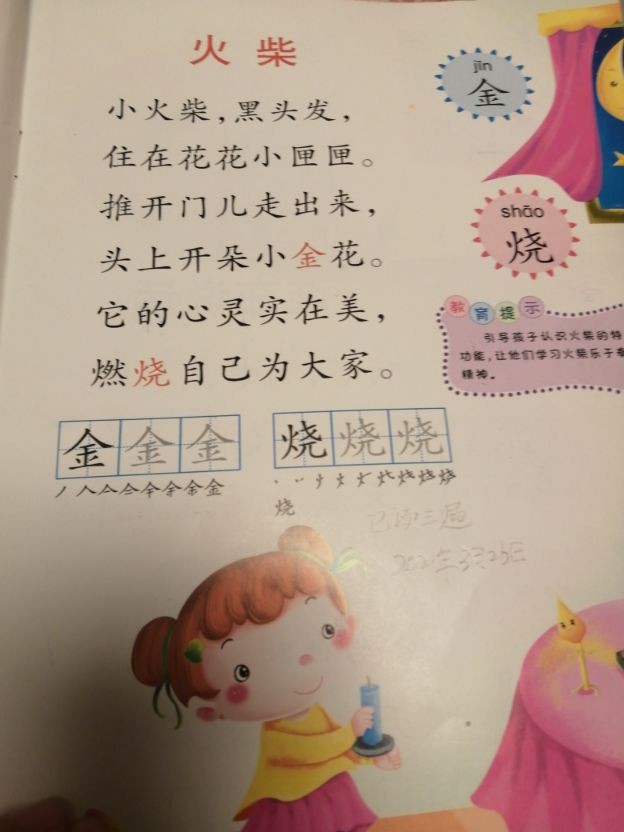 火柴
小火柴，黑头发，
住在花花小匣匣。
推开门儿走出来，
头上开朵小金花。
它的心灵实在美，
燃烧自己为大家。
jīn
金
shāo
烧
教育提示
引导孩子认识火柴的特
功能，让他们学习火柴乐于奉
精神。
金金金
烧烧烧
烧
已读三遍
2021年3月23日